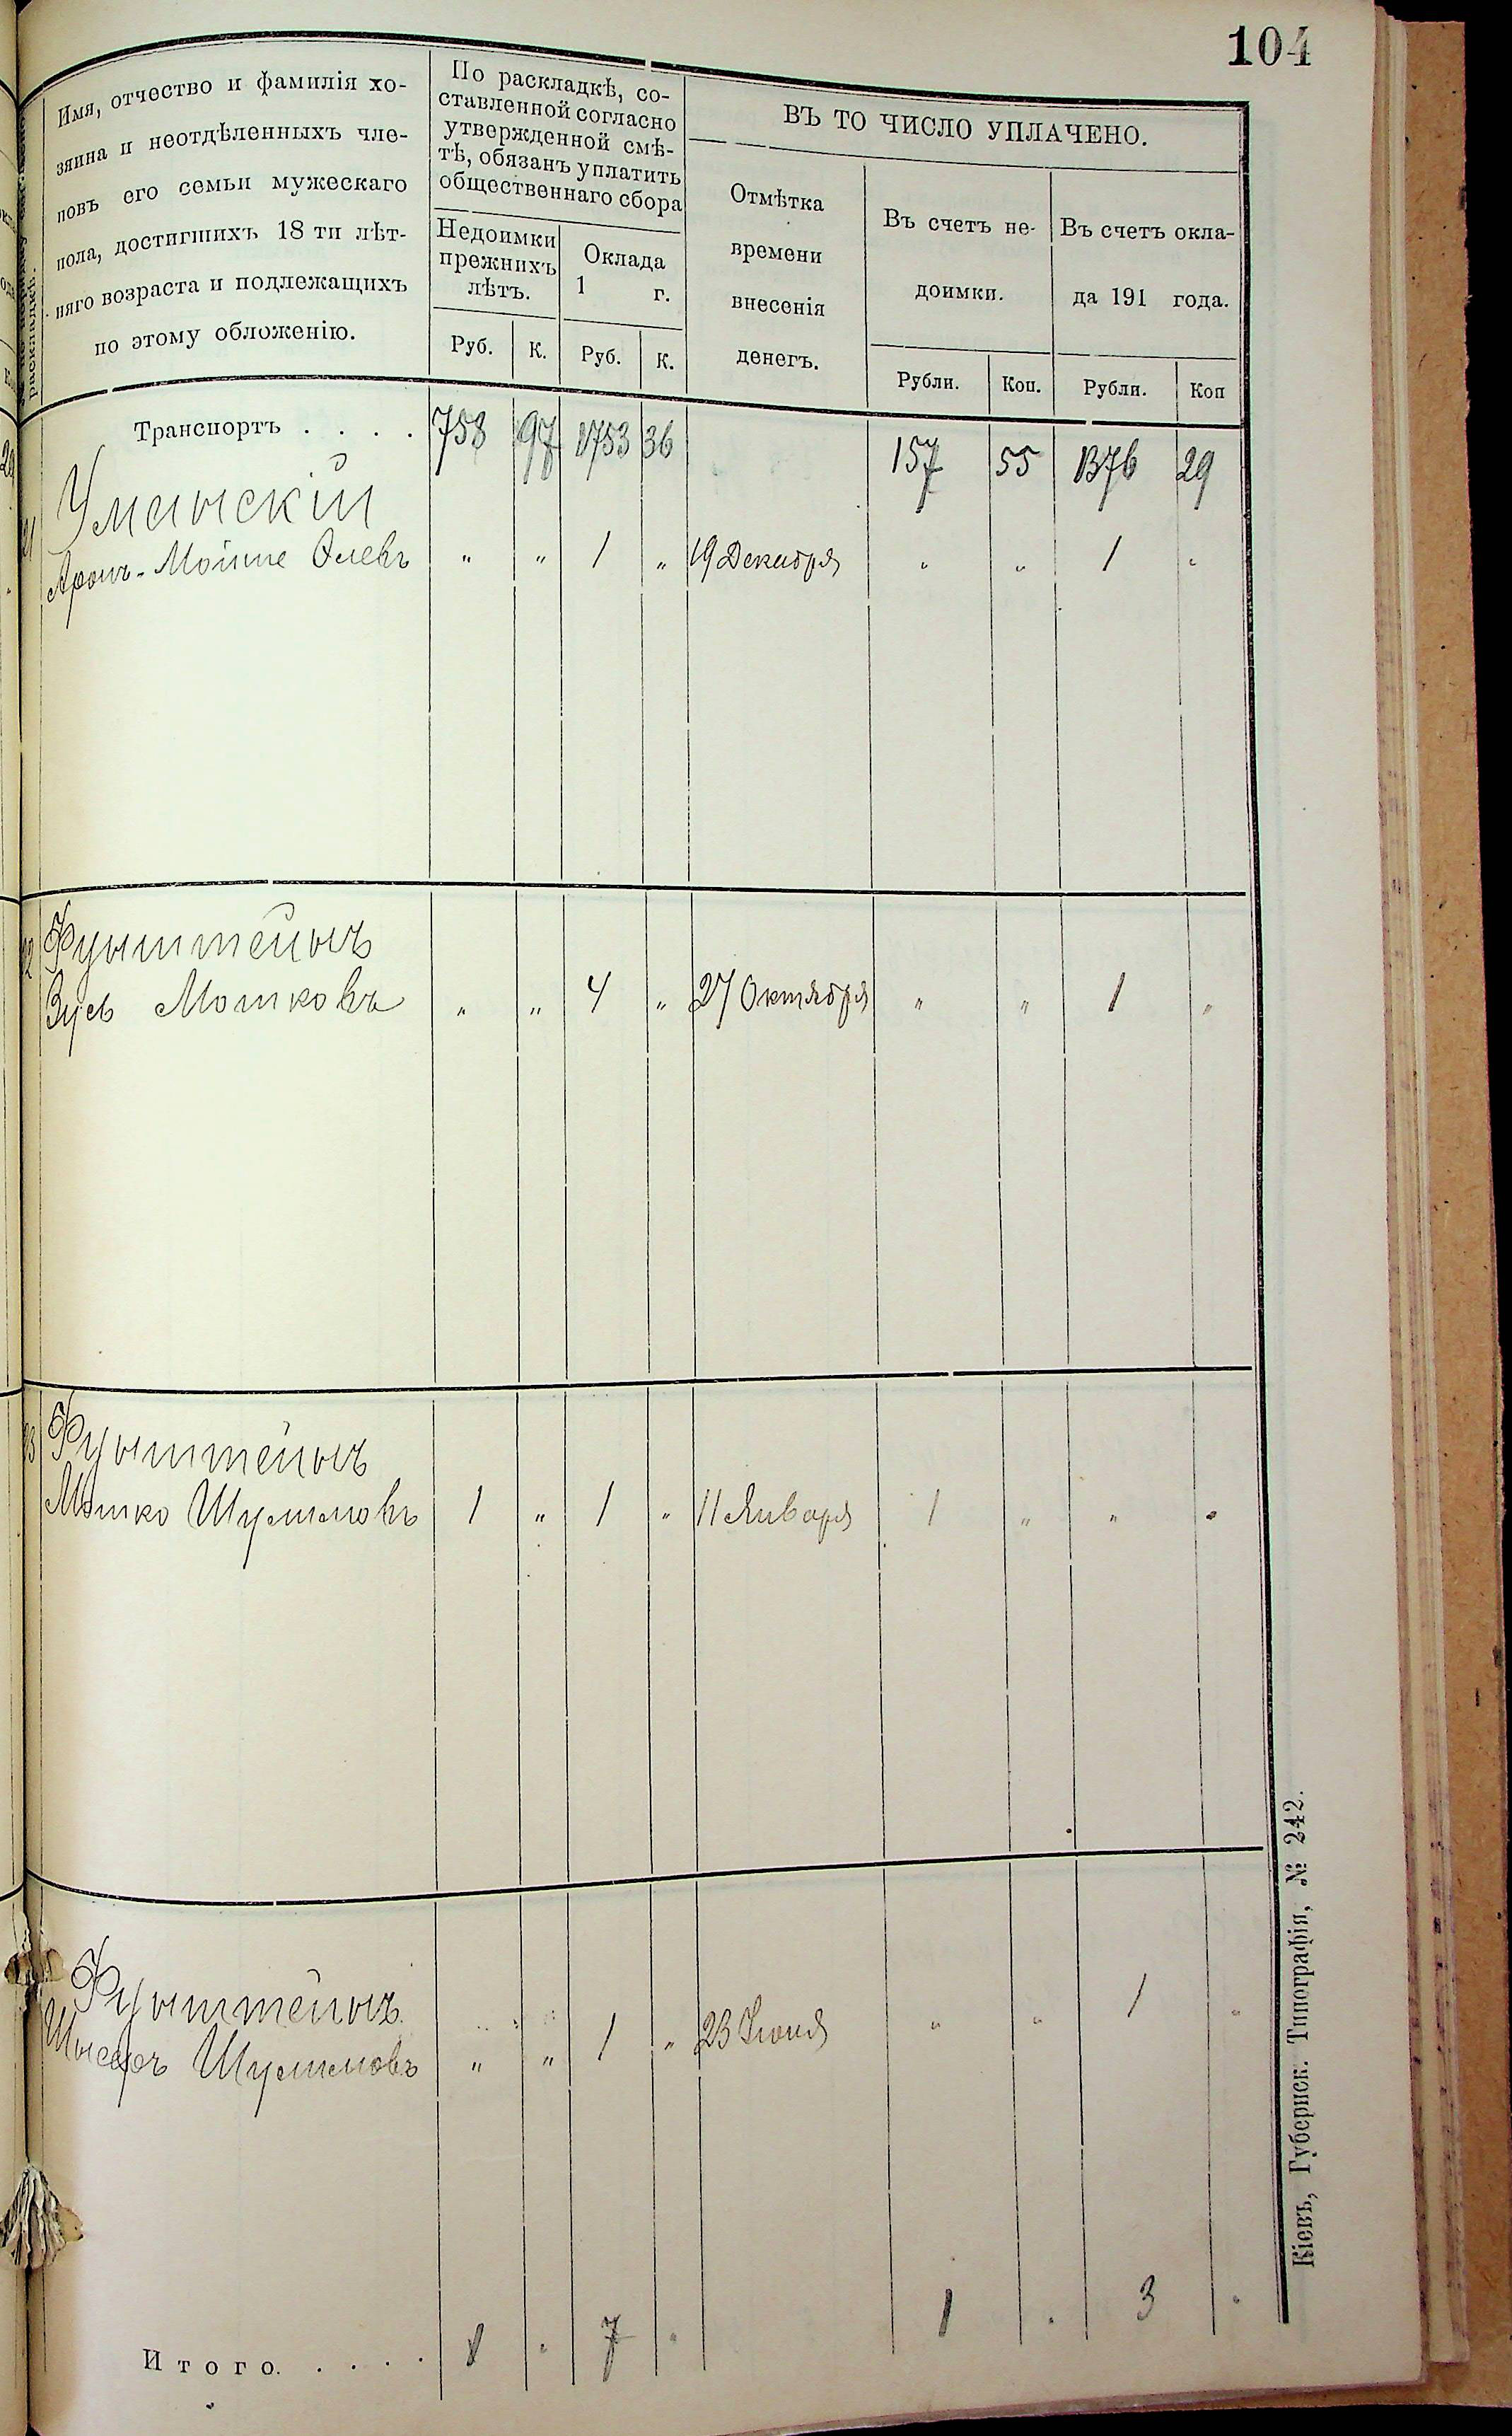 104
Имя, отчество и фамилія хо-
зяина и неотдѣленныхъ чле-
новъ его семьи мужескаго
пола, достигшихъ 18 ти лѣт-
няго возраста и подлежащихъ
по этому обложенію.
По раскладкѣ, со-
ставленной согласно
утвержденной смѣ-
тѣ, обязанъ уплатить
общественнаго сбора
Недоимки
прежнихъ
лѣтъ.
Оклада
1 г.
Руб. К. Руб. К.
ВЪ ТО ЧИСЛО УПЛАЧЕНО.
Отмѣтка
времени
внесенія
денегъ.
Въ счетъ не-
доимки.
Въ счетъ окла-
да 191 года.
Рубли. Коп. Рубли. Коп
Транспортъ . . . . 758 97 1753 36 157 55 1376 29
21 Уманскій
Аронъ-Мойше " " 1 " 19 Декабря " " 1 "
Фунштейнъ
Зусь Мошковъ " " 4 " 27 Октября " " 1 "
Фунштейнъ
Мошко Шулимовъ 1 " 1 " 11 Января 1 " " "
Фунштейнъ
Шулимовъ " " 1 " 23 Іюня " " 1 "
Итого. . . . . 1 . 7 . 1 . 3 .
Кіевъ, Губернск. Типографія, № 242.